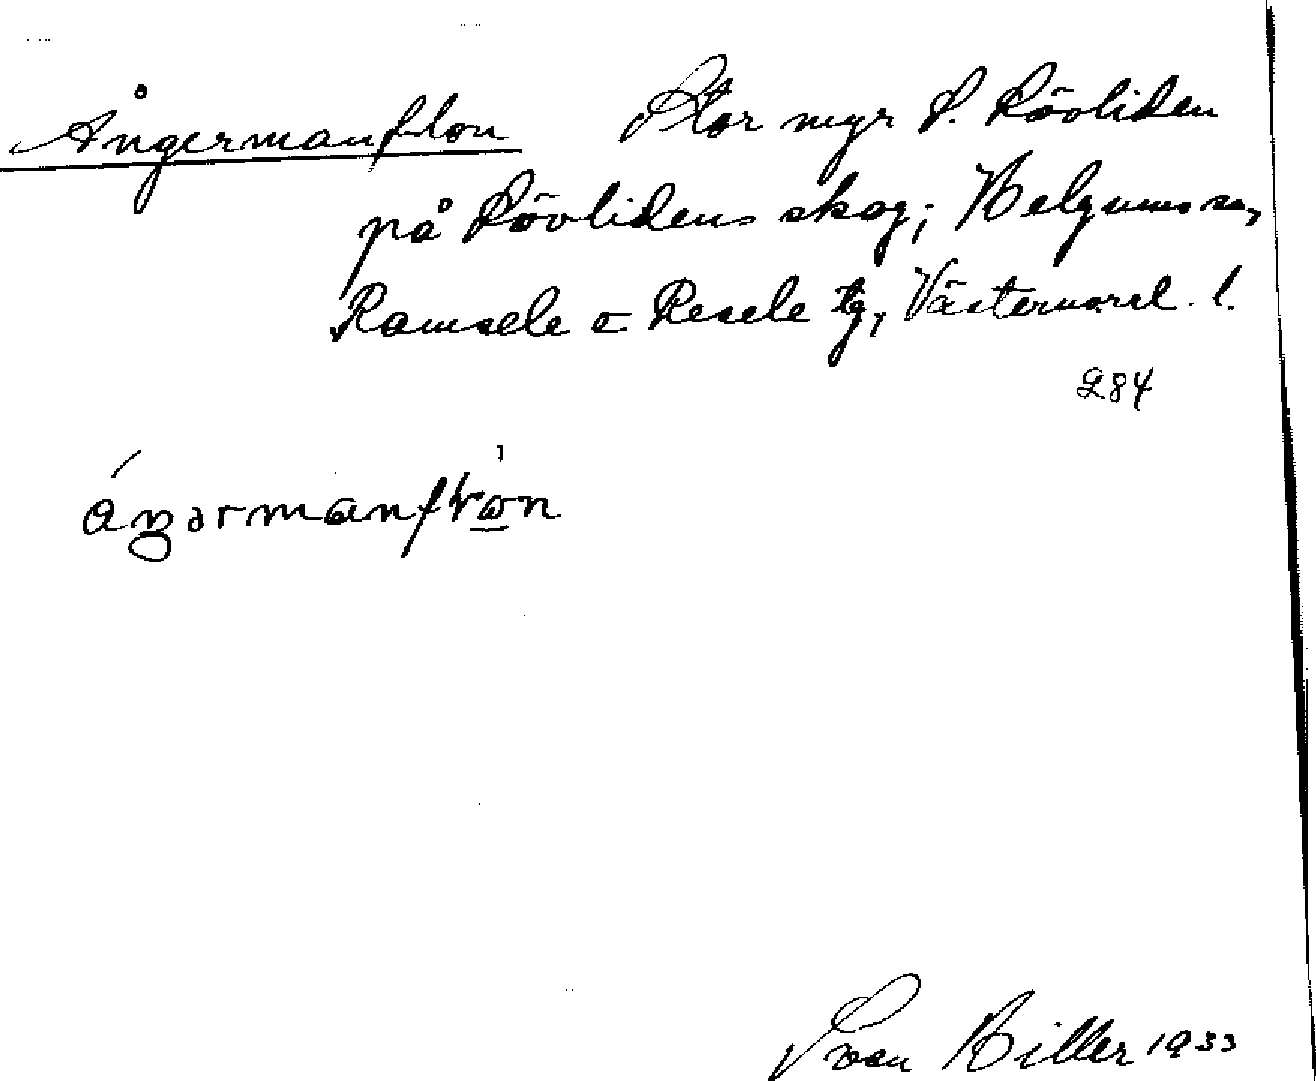 Ångermanflon Stor myr S. Lövliden
på Lövlidens skog; Helgums sn,
Ramsele o Resele tg, Västernorrl. l.
284
Sven Hiller 1933